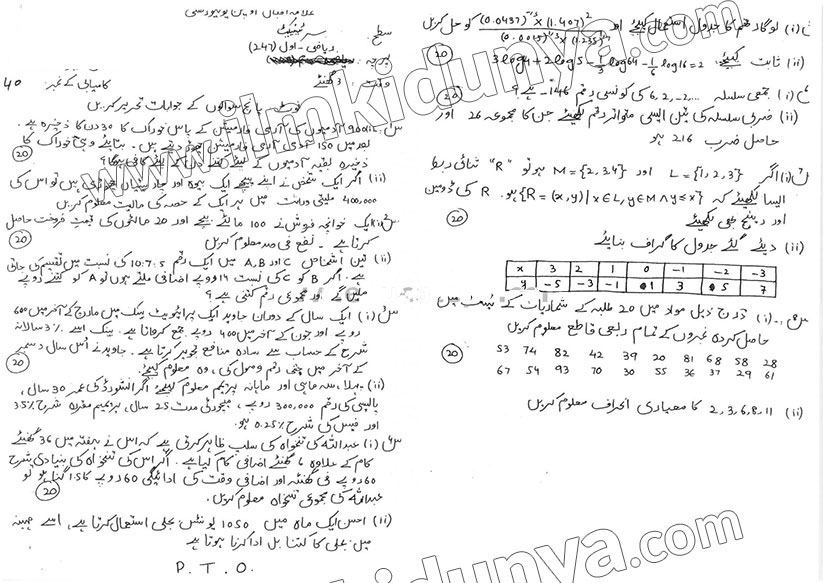 علامہ اقبال اوپن یونیورسٹی
سطح: میٹرک
پرچہ: ریاضی - اول (247)
وقت: 3 گھنٹے
کامیابی کے نمبر: 40
نوٹ: پانچ سوالوں کے جوابات تحریر کریں۔
(i) 900 آدمیوں کی آرمی فارمیشن کے پاس خوراک کا 30 دن کا ذخیرہ ہے۔
بعد میں 150
ذخیرہ بقیہ آدمیوں کے لیے کتنے دن کے لیے کافی ہوگا؟
(20)
(ii) اگر ایک شخص نے اپنے پیچھے ایک بیوہ اور چار بیٹیاں چھوڑی ہیں تو اس کی
400,000 ملین وراثت میں ہر ایک کے حصہ کی مالیت معلوم کریں
ایک خوانچہ فروش نے 100 مالٹے بیچے اور 20 مالٹوں کی قیمت فروخت حاصل
کرتا ہے۔ نفع فی صد معلوم کریں
(20)
(ii) تین اشخاص A,B اور C میں ایک رقم 10:7:5 میں تقسیم کی جاتی
ہے۔ اگر B کو C کی نسبت 16 روپے اضافی ملتے ہوں تو A کو کتنے روپے
ملیں گے اور مجموعی رقم کتنی ہے؟
(i) ایک سال کے دوران جاوید ایک پرائیویٹ بینک میں مارچ کے آخر میں 600
روپے اور جون کے آخر میں 400 روپے جمع کرواتا ہے۔ بینک اسے 3% سالانہ
شرح کے حساب سے سادہ منافع تجویز کرتا ہے۔ جاوید نے اس سال دسمبر
کے آخر میں جتنی رقم وصول کی، وہ معلوم کیجئے۔
(20)
(ii) سہ ماہی اور ماہانہ پریمیم معلوم کیجئے اگر انشورڈ کی عمر 30 سال،
پالیسی کی رقم 300,000 روپے، میچورٹی مدت 25 سال، پریمیم مقررہ شرح 35%
اور فیس کی شرح 0.25% ہو۔
(i) عبداللہ کی تنخواہ کی سلپ ظاہر کرتی ہے کہ اس نے ہفتہ میں 36 گھنٹے
کام کے علاوہ 6 گھنٹے اضافی کام کیا ہے۔ اگر اس کی تنخواہ کی بنیادی شرح
60 روپے فی گھنٹہ اور اضافی وقت کی ادائیگی 60 روپے کا 1.5 گنا ہو تو
عبداللہ کی مجموعی تنخواہ معلوم کریں۔
(20)
(ii) احسن ایک ماہ میں 1050 یونٹس بجلی استعمال کرتا ہے، اسے مہینہ
میں بجلی کا کتنا بل ادا کرنا ہوتا ہے
P.T.O.
(i) لوگارتھم کا جدول استعمال کیجئے اور (1.407)² کو حل کریں
(20)
(ii) ثابت کیجئے 3log4+2log5-1/3log64-1/6log16=2
(i) جمعی سلسلہ 6,2,-2,... کی کونسی رقم -146 ہے؟
(20)
(ii) ضربی سلسلہ کی تین ایسی متواتر رقم لکھیئے جن کا مجموعہ 26 اور
حاصل ضرب 216 ہو
(i) اگر L={1,2,3} اور M={2,3,4} ہو تو "R" ثنائی ربط
ایسا لکھیئے کہ {R=(x,y)|x∈L,y∈M∧y≤x} ہو۔ R کی ڈومین
اور رینج بھی لکھیئے
(20)
(ii) دیئے گئے جدول کا گراف بنایئے
x 3 2 1 0 -1 -2 -3
y -5 -3 -1 1 3 5 7
(i) درج ذیل مواد میں 20 طلبہ کے شماریات کے ٹیسٹ میں
حاصل کردہ نمبروں کے تمام ربعی قاطع معلوم کریں
(20)
53 74 82 42 39 20 81 68 58 28
67 54 93 70 30 55 36 37 29 61
(ii) 2,3,6,8,11 کا معیاری انحراف معلوم کریں
ilmkidunya.com
ilmkidunya.com